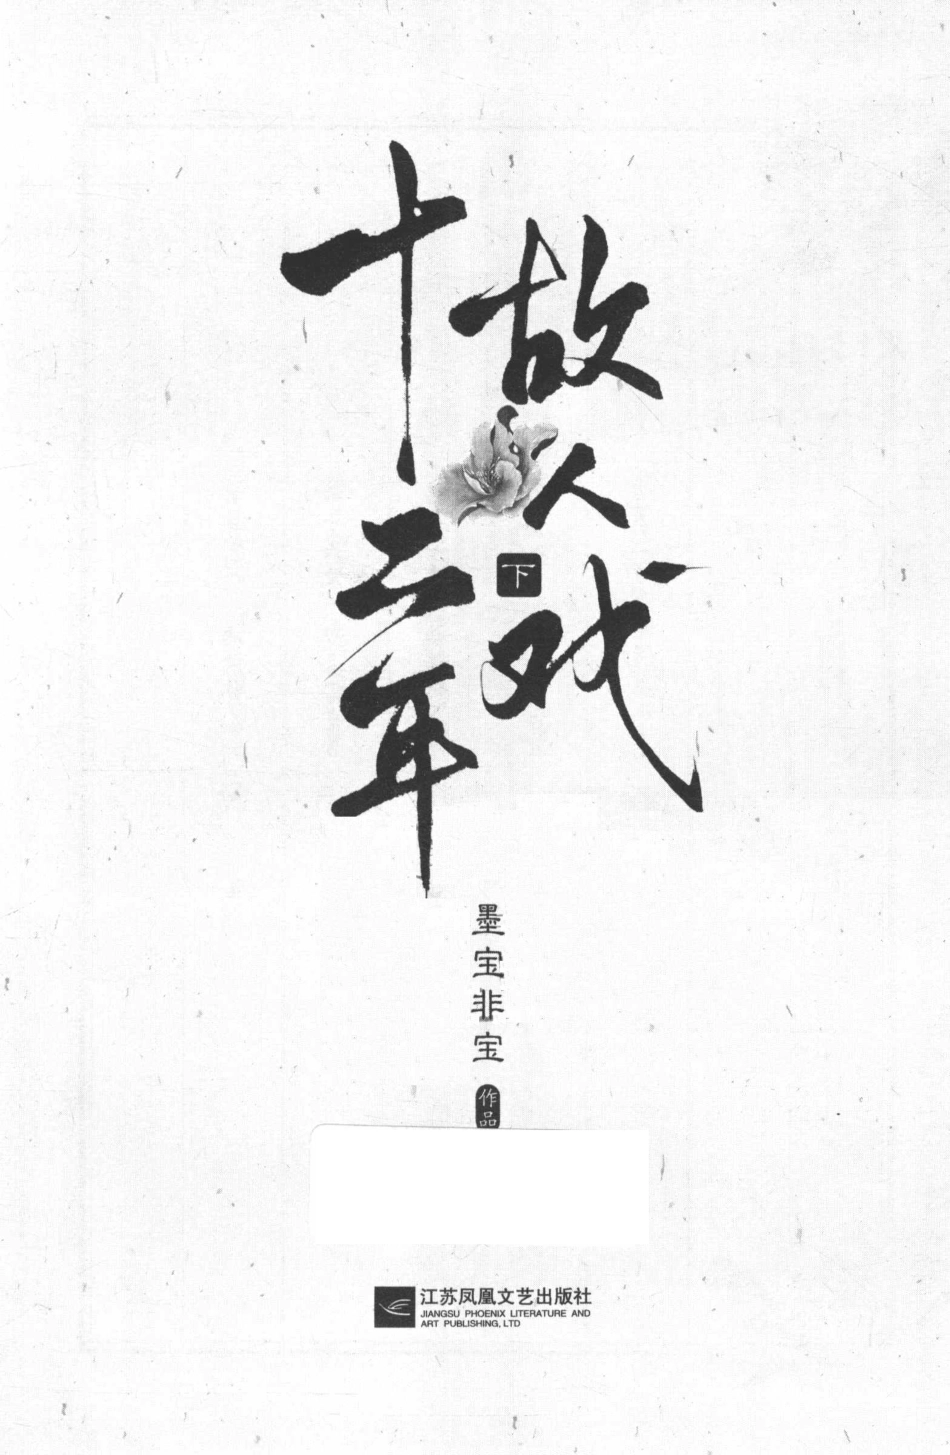 十二年
故人戏
下
墨宝非宝
作品
江苏凤凰文艺出版社
JIANGSU PHOENIX LITERATURE AND
ART PUBLISHING, LTD